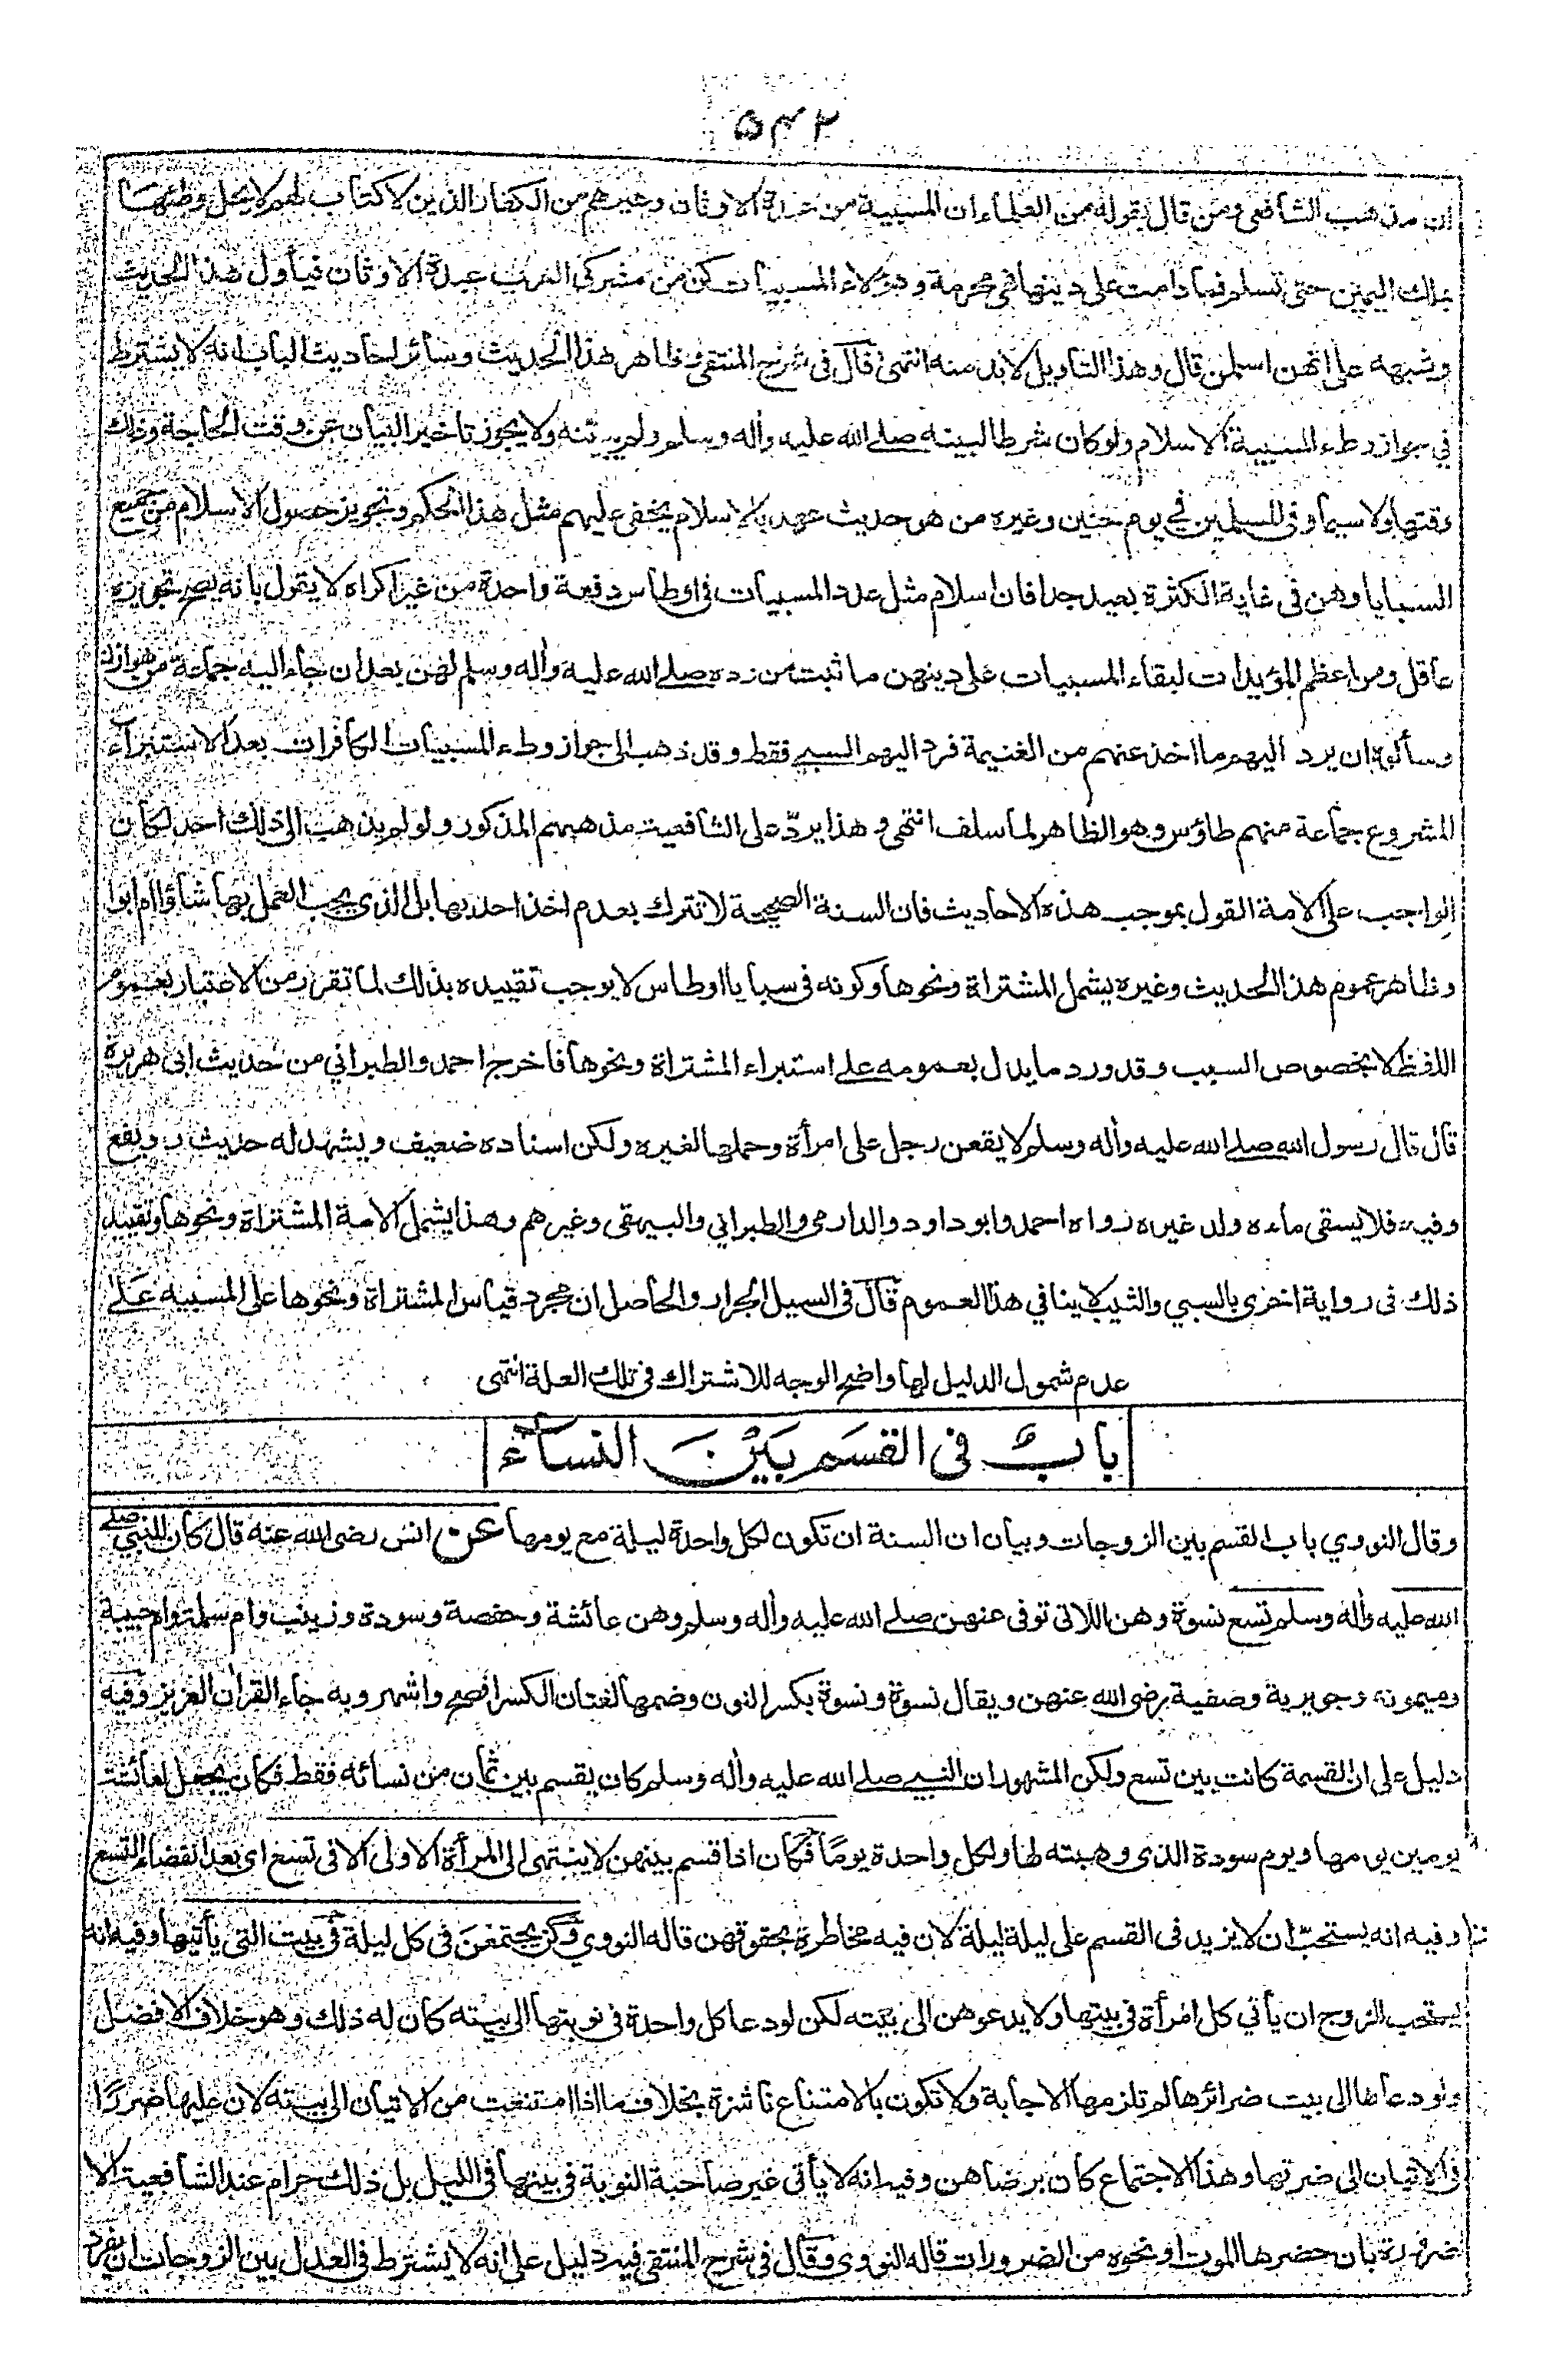 ۵۴۲
ان مذهب الشافعى ومن قال بقوله من العلماء ان المسبية من عبدة الاوثان وغيرهم من الكفار الذين لا كتاب لهم لا يحل وطئها
بملك اليمين حتى تسلم فما دامت على دينها فهي محرمة وهؤلاء المسبيات كن من مشركى العرب عبدة الاوثان فيأول هذا الحديث
وشبهه على انهن اسلمن قال وهذا التاويل لا بد منه انتهى قال فى شرح المنتقى وظاهر هذا الحديث وسائر احاديث الباب انه لا يشترط
في جواز وطء المسبية الاسلام ولو كان شرطا لبينه صلى الله عليه وأله وسلم ولم يبينه ولا يجوز تاخير البيان عن وقت الحاجة وذلك
وقتها ولا سيما وفى المسلمين في يوم حنين وغيره من هو حديث عهد بالاسلام يخفى عليهم مثل هذا الحكم وتجويز حصول الاسلام من جميع
السبايا وهن فى غاية الكثرة بعيد جدا فان اسلام مثل عدد المسبيات فى اوطاس دفعة واحدة من غير اكراه لا يقول بانه يصح تجويزه
عاقل ومن اعظم المؤيدات لبقاء المسبيات على دينهن ما ثبت من رده صلى الله عليه وأله وسلم لهن بعد ان جاء اليه جماعة من هوازن
وسألوه ان يرد اليهم ما اخذ عنهم من الغنيمة فرد اليهم السبي فقط وقد ذهب الى جواز وطء المسبيات الكافرات بعد الاستبراء
المشروع جماعة منهم طاؤس وهو الظاهر لما سلف انتهى وهذا يردّ على الشافعية مذهبهم المذكور ولو لم يذهب الى ذلك احد لكان
الواجب على الامة القول بموجب هذه الاحاديث فان السنة الصحيحة لا تترك بعدم اخذ احد بها بل الذى يجب العمل بها شاؤا ام ابوا
وظاهر عموم هذا الحديث وغيره يشمل المشتراة ونحوها وكونه فى سبايا اوطاس لا يوجب تقييده بذلك لما تقرر من الاعتبار بعموم
اللفظ لا بخصوص السبب وقد ورد ما يدل بعمومه على استبراء المشتراة ونحوها فاخرج احمد والطبراني من حديث ابى هريرة
قال قال رسول الله صلى الله عليه وأله وسلم لا يقعن رجل على امرأة وحملها لغيره ولكن اسناده ضعيف ويشهد له حديث رويفع
وفيه فلا يسقى ماءه ولد غيره رواه احمد وابو داود والدارمى والطبراني والبيهقى وغيرهم وهذا يشمل الامة المشتراة ونحوها وتقييد
ذلك فى رواية اخرى بالسبي والثيب لا ينافي هذا العموم قال فى السيل الجرار والحاصل ان مجرد قياس المشتراة ونحوها على المسبيه على
عدم شمول الدليل لها واضح الوجه للاشتراك فى تلك العلة انتهى
باب فى القسم بين النسآء
وقال النووي باب القسم بين الزوجات وبيان ان السنة ان تكون لكل واحدة ليلة مع يومها عن انس رضى الله عنه قال كان للنبي صلى
الله عليه وأله وسلم تسع نسوة وهن اللاتى توفى عنهن صلى الله عليه وأله وسلم وهن عائشة وحفصة وسودة وزينب وام سلمة وام حبيبة
وميمونة وجويرية وصفية رضى الله عنهن ويقال نسوة ونسوة بكسر النون وضمها لغتان الكسر افصح واشهر وبه جاء القرأن العزيز وفيه
دليل على ان القسمة كانت بين تسع ولكن المشهور ان النبي صلى الله عليه وأله وسلم كان يقسم بين ثمان من نسائه فقط فكان يجعل لعائشة
يومين يومها ويوم سودة الذى وهبته لها ولكل واحدة يومًا فكان اذا قسم بينهن لا ينتهى الى المرأة الاولى الا فى تسع اى بعد انقضاء التسع
وفيه انه يستحبّ ان لا يزيد فى القسم على ليلة ليلة لان فيه مخاطرة بحقوقهن قاله النووي فكن يجتمعن فى كل ليلة فى بيت التى يأتيها وفيه انه
يستحب للزوج ان يأتي كل امرأة فى بيتها ولا يدعوهن الى بيته لكن لو دعا كل واحدة فى نوبتها الى بيته كان له ذلك وهو خلاف الافضل
ولو دعاها الى بيت ضرائرها لم تلزمها الاجابة ولا تكون بالامتناع ناشزة بخلاف ما اذا امتنعت من الاتيان الى بيته لان عليها ضررًا
فى الاتيان الى ضرتها وهذا الاجتماع كان برضاهن وفيه انه لا يأتى غير صاحبة النوبة فى بيتها فى الليل بل ذلك حرام عند الشافعية الا
ضرورة بان حضرها الموت او نحوه من الضرورات قاله النووى وقال فى شرح المنتقى فيه دليل على انه لا يشترط فى العدل بين الزوجات ان يفرد